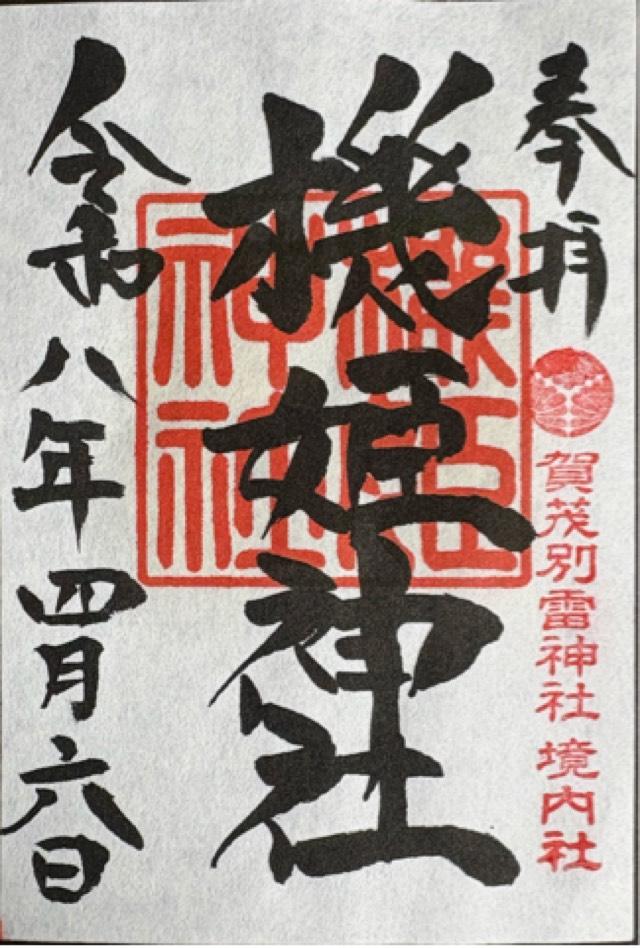 奉拝
賀茂別雷神社 境内社
機姫神社
神社
令和八年四月六日